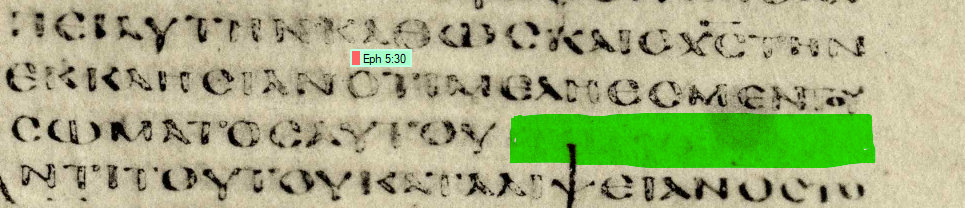 ΠΕΙΑΥΤΗΝΚΑΘωϹΚΑΙΟΧϹΤΗΝ
Eph 5:30
ΕΚΚΛΗϹΙΑΝΟΤΙΜΕΛΗΕϹΜΕΝΤΟΥ
ϹωΜΑΤΟϹΑΥΤΟΥ
ΑΝΤΙΤΟΥΤΟΥΚΑΤΑΛΙΨΕΙΑΝΟϹΤΟ